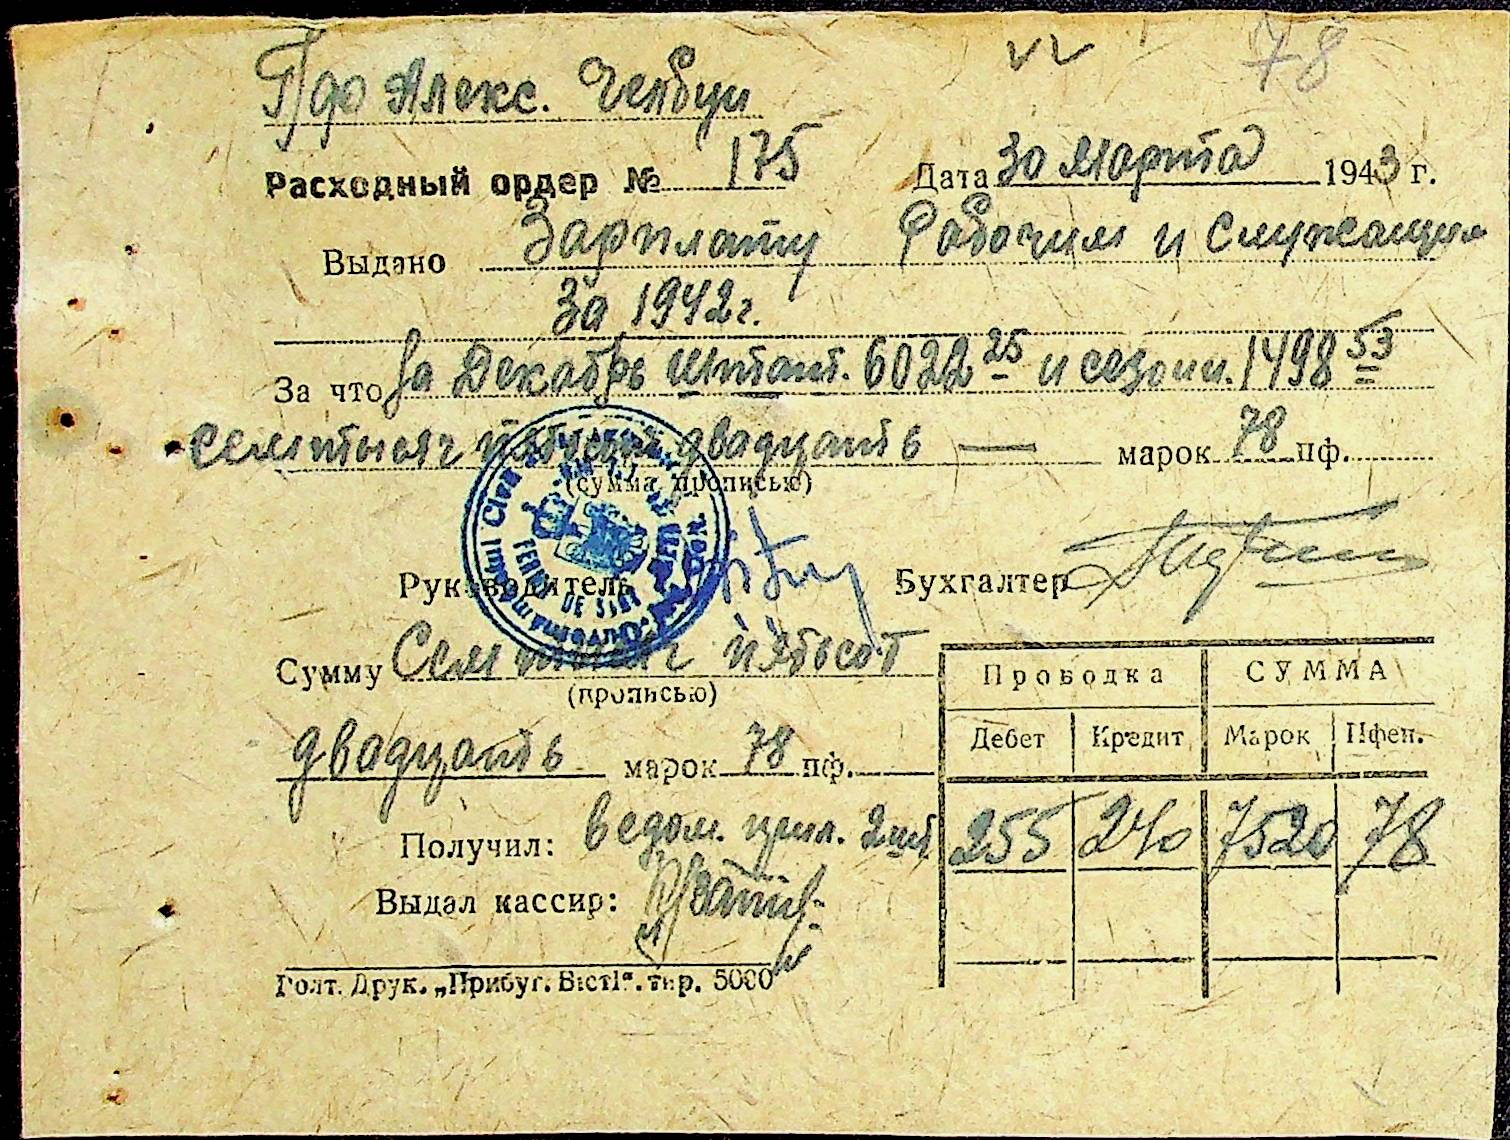 78
Алекс.
Расходный ордер № 175 Дата 30 Марта 1943 г.
Выдано Зарплату Рабочим и Служащим
За 1942г.
За что За Декабрь Штат. 6022 25 и сезонн. 1498 53
семь тысяч пятьсот двадцать — марок 78 пф.
(сумма прописью)
Руководитель Бухгалтер
Сумму Семь тысяч пятьсот
(прописью)
двадцать марок 78 пф.
Прободка СУММА
Дебет Кредит Марок Пфен.
255 240 7520 78
Получил: ведом. прил. 2 шт
Выдал кассир:
Голт. Друк. „Прибуг. Вісті“. тир. 5000